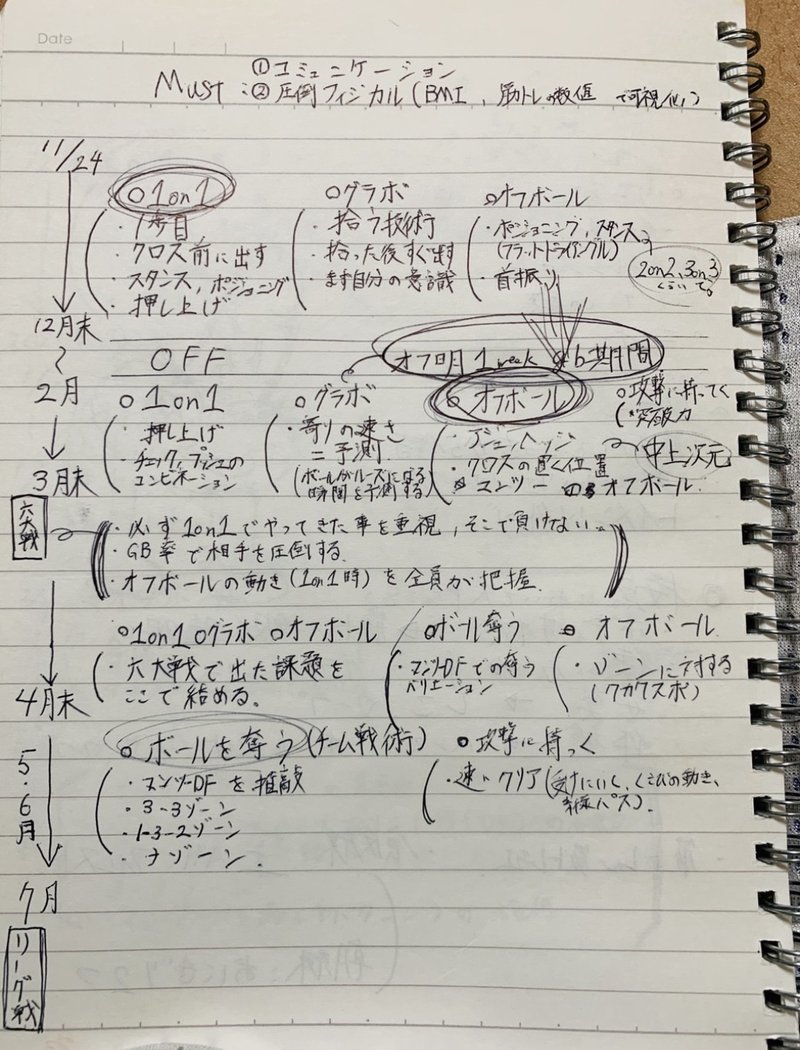 Date
① コミュニケーション
Must : ② 圧倒フィジカル(BMI、筋トレの数値 で可視化)
11/24
○1on1
・1歩目
・クロス前に出す
・スタンス, ポジショニング
・押し上げ
○グラボ
・拾う技術
・拾った後すぐ出す
・まず自分の意識
○オフボール
・ポジショニング, スタンス
(フラットトライアングル)
・首振り
2on2, 3on3
くらいでる
12月末
〜
OFF
オフ明1week 期間
2月
○1on1
・押し上げ
・チェック、プッシュの
コンビネーション
○グラボ
・寄りの速さ
= 予測
(ボールがルーズになる
瞬間を予測する)
○オフボール
・クロスの置く位置
オフボール
○攻撃に持ってく
突破力
中上次元
3月末
六大戦
・必ず1on1でやってきた事を重視, そこで負けない。
・GB率で相手を圧倒する.
・オフボールの動き(1on1時)を全員が把握.
○1on1 ○グラボ ○オフボール
・六大戦で出た課題を
ここで詰める。
○ボール奪う
・マンツーDFでの奪う
バリエーション
○ オフボール
・ゾーンに対する
(ワカワスポ)
4月末
5・6月
○ボールを奪う(チーム戦術)
・マンツーDFを推敲
・3-3ゾーン
・1-3-2ゾーン
・ナゾーン.
○攻撃に持っく
・速いクリア(受けにいく, くさびの動き,
パス).
7月
リーグ戦